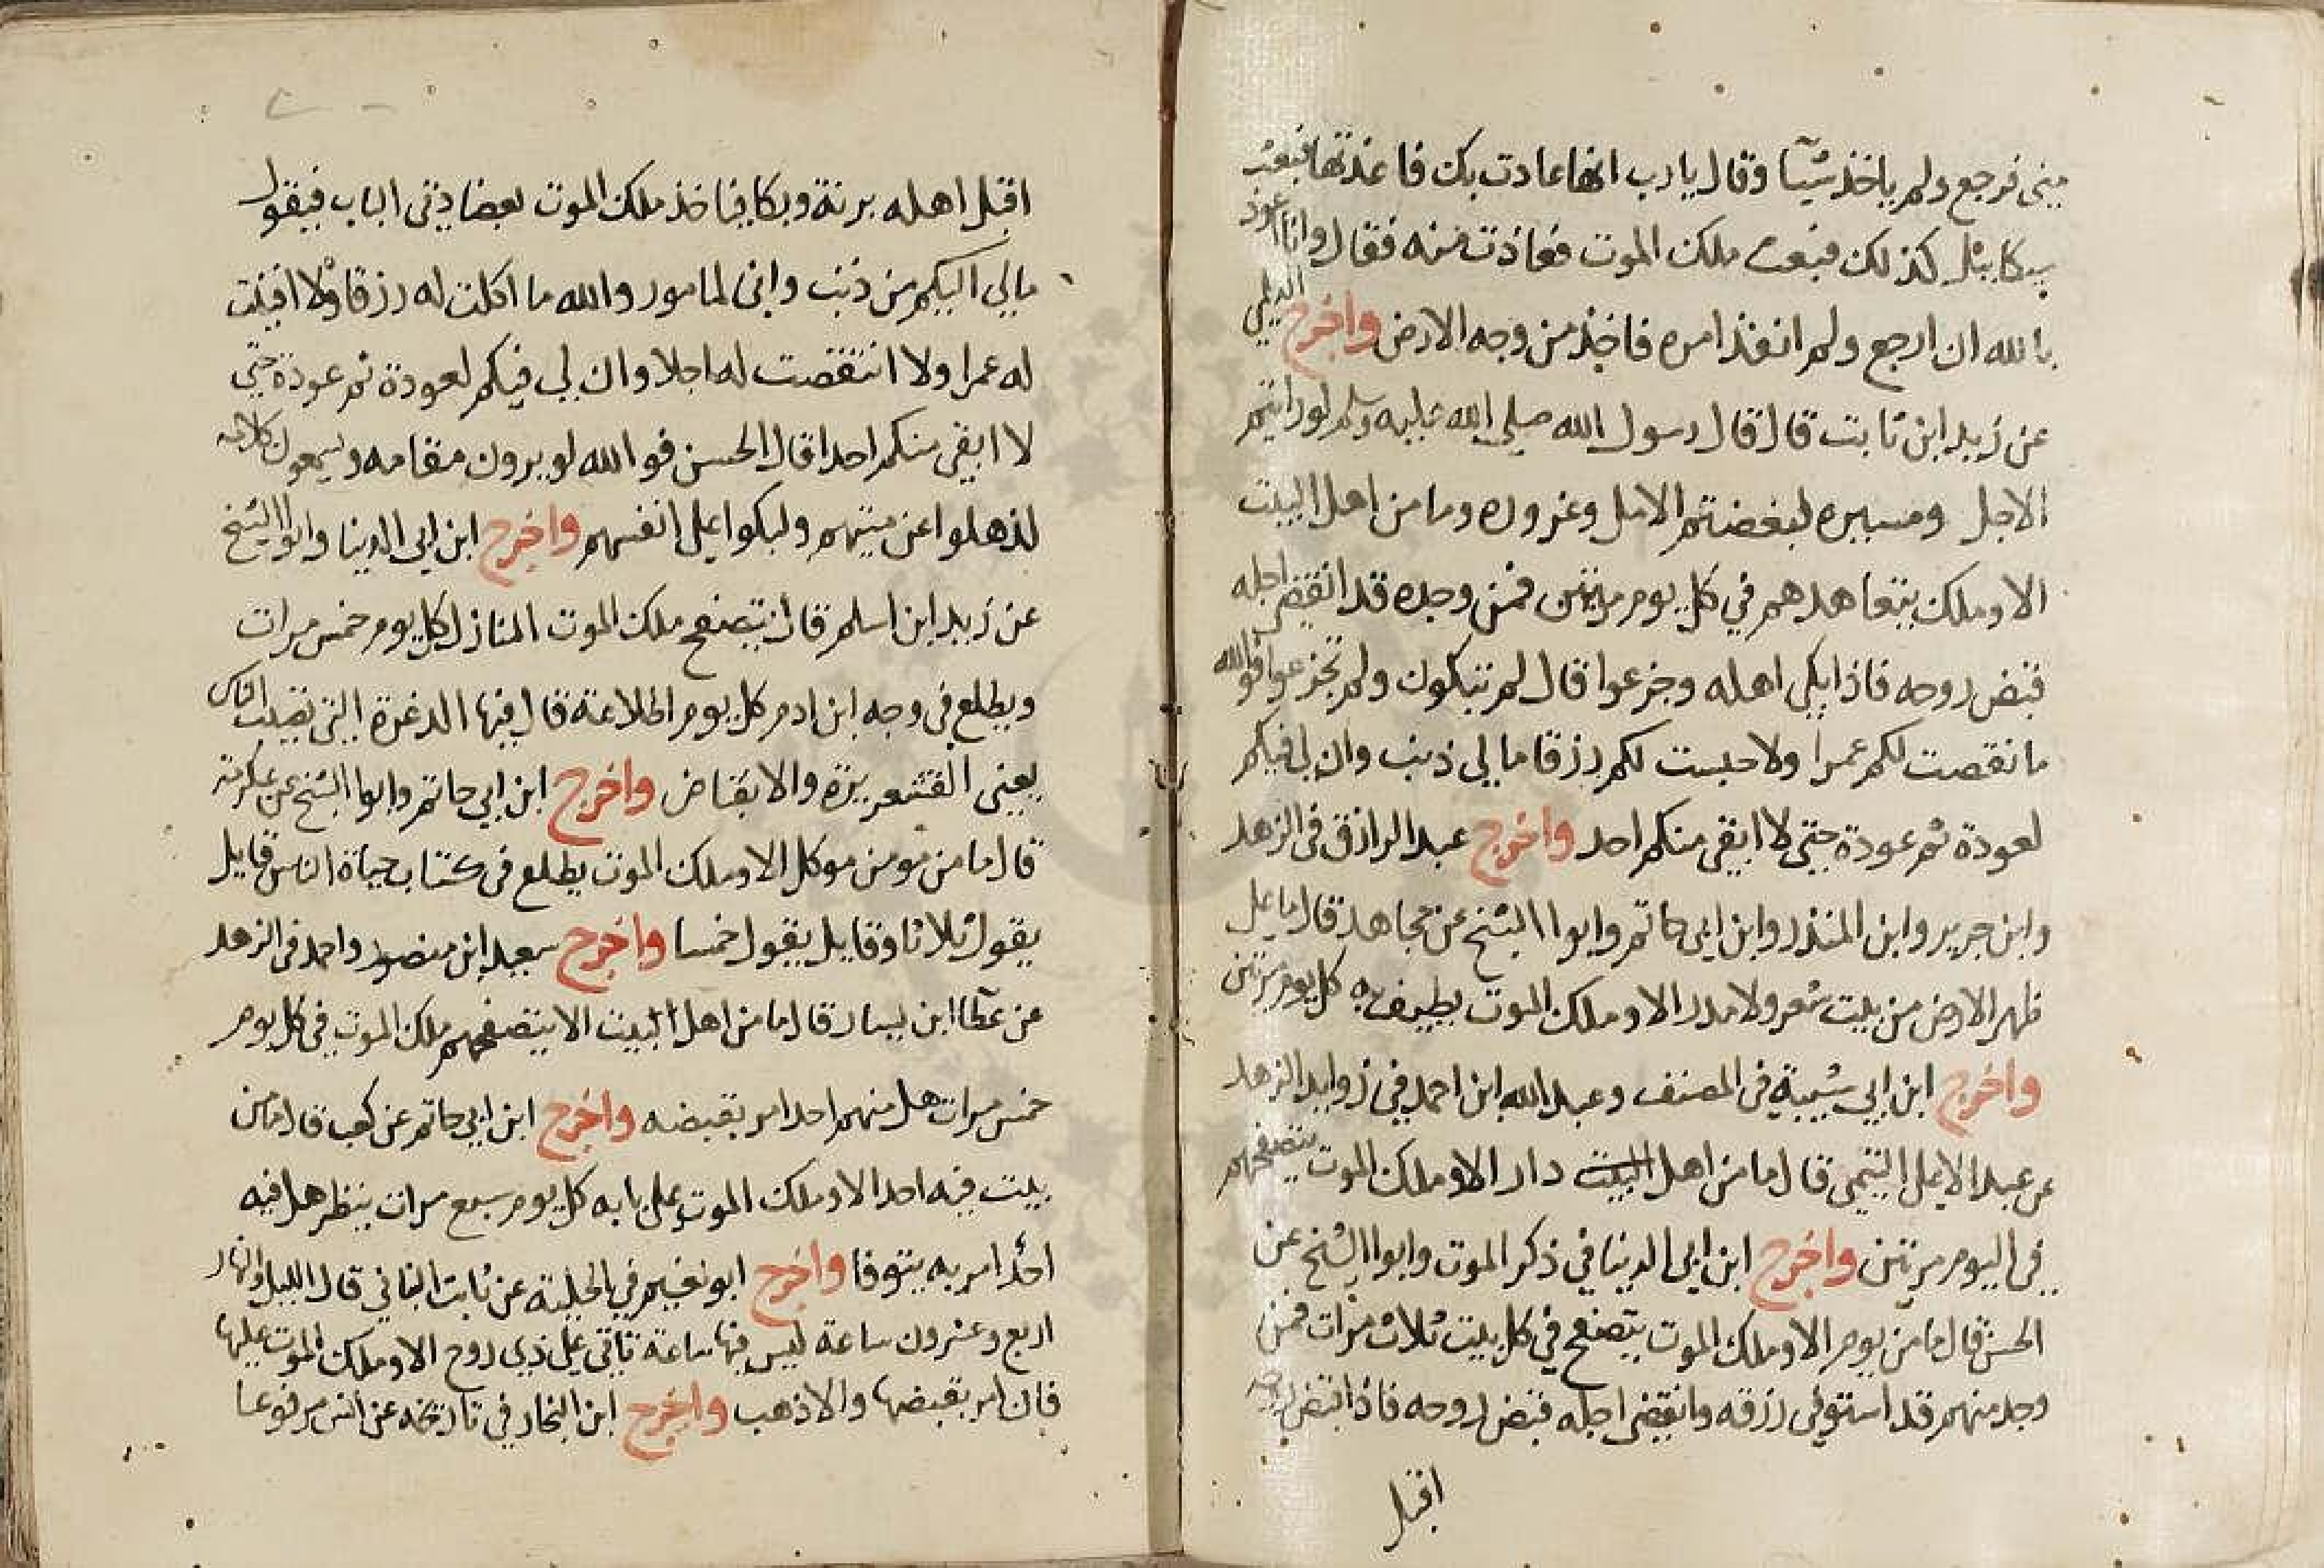 مني فرجع ولم ياخذ شيئا وقال يارب انها عاذت بك فاعذتها فبعث
ميكاييل كذلك فبعث ملك الموت فعاذت منه فقال وانا اعوذ
بالله ان ارجع ولم انفذ امره فاخذ من وجه الارض واخرج الديلمي
عن زيد ابن ثابت قال قال رسول الله صلي الله عليه وسلم لو رايتم
الاجل ومسيره لبغضتم الامل وغروره وما من اهل البيت
الا وملك يتعاهدهم في كل يوم مرتين فمن وجده قد انقضى اجله
قبض روحه فاذا بكي اهله وجزعوا قال لم تبكون ولم تجزعوا فوالله
ما نقصت لكم عمرا ولا حبست لكم رزقا مالي ذنب وان لي فيكم
لعودة ثم عودة حتى لا ابقي منكم احد واخرج عبد الرازق في الزهد
وابن جرير وابن المنذر وابن ابي حاتم وابوا الشيخ عن مجاهد قال ما على
ظهر الارض من بيت شعر ولا مدر الا وملك الموت يطيف به كل يوم مرتين
واخرج ابن ابي شيبة في المصنف وعبد الله ابن احمد في زوايد الزهد
عن عبد الاعلى التيمي قال ما من اهل البيت دار الا وملك الموت يتصفحهم
في اليوم مرتين واخرج ابن ابي الدينا في ذكر الموت وابوا الشيخ عن
الحسن قال ما من يوم الا وملك الموت يتصفح في كل بيت ثلاث مرات فمن
وجد منهم قد استوفى رزقه وانقضى اجله قبض روحه فاذا قبض روحه
اقبل
اقبل اهله برنة وبكا فياخذ ملك الموت بعضادتي الباب فيقول
مالي اليكم من ذنب واني لمامور والله ما اكلت له رزقا ولا افنيت
له عمرا ولا انتقصت له اجلا وان لي فيكم لعودة ثم عودة حتى
لا ابقي منكم احدا قال الحسن فو الله لو يرون مقامه ويسمعون كلامه
لذهلوا عن ميتهم ولبكوا على انفسهم واخرج ابن ابي الدينا وابوا الشيخ
عن زيد ابن اسلم قال يتصفح ملك الموت المنازل كل يوم خمس مرات
ويطلع في وجه ابن ادم كل يوم اطلاعة قال فيها الدغرة التي تصيب الناس
يعني القشعريرة والانقباض واخرج ابن ابي حاتم وابوا الشيخ عن عكرمة
قال ما من مومن موكل الا وملك الموت يطلع في كتاب حياة الناس قايل
يقول ثلاثا وقايل يقول خمسا واخرج سعيد ابن منصور واحمد في الزهد
عن عطا ابن يسار قال ما من اهل البيت الا يتصفحهم ملك الموت في كل يوم
خمس مرات هل منهم احد امر بقبضه واخرج ابن ابي حاتم عن كعب قال ما من
بيت فيه احد الا وملك الموت على بابه كل يوم سبع مرات ينظر هل فيه
احد امر به يتوفا واخرج ابو نعيم في الحلية عن ثابت البناني قال الليل والنهار
اربع وعشرون ساعة ليس فيها ساعة تاتي على ذي روح الا وملك الموت عليها
فان امر بقبضها والا ذهب واخرج ابن النجار في تاريخه عن انس مرفوعا